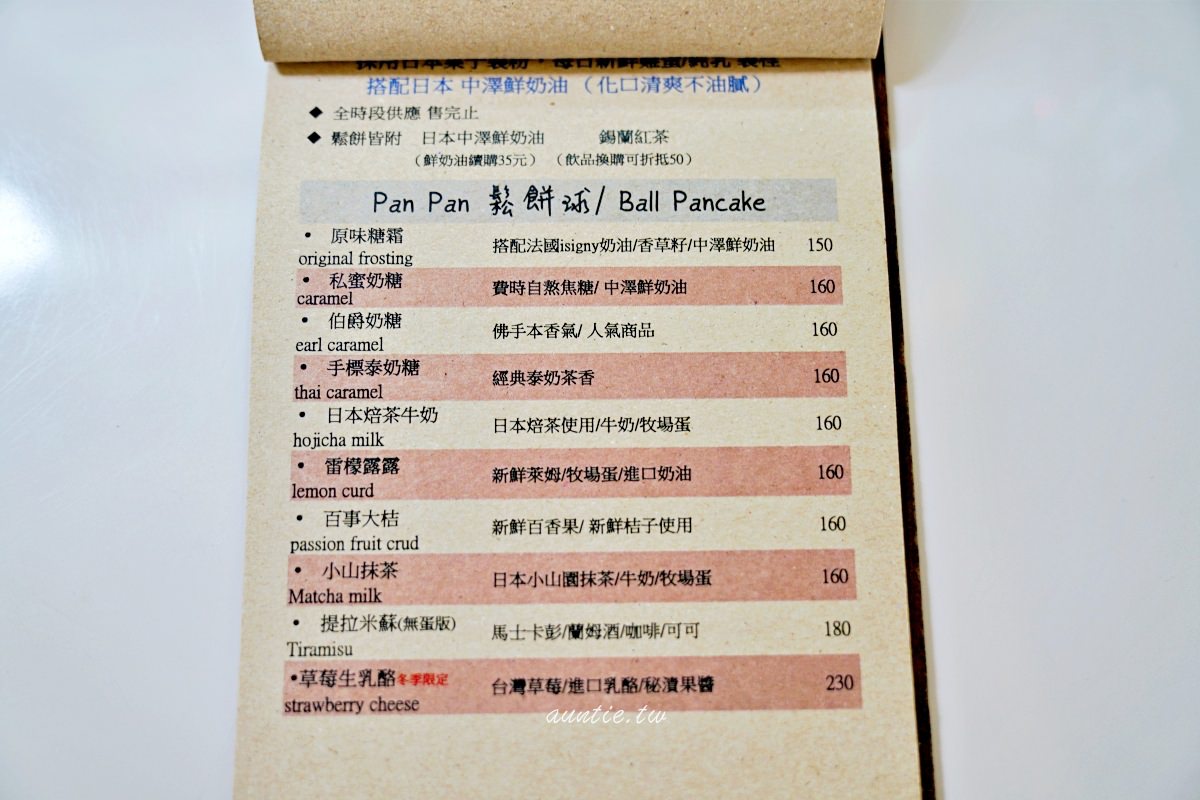 採用日本菓子製粉，每日新鮮雞蛋/純乳 製程
搭配日本 中澤鮮奶油 （化口清爽不油膩）
◆ 全時段供應 售完止
◆ 鬆餅皆附 日本中澤鮮奶油 錫蘭紅茶
（鮮奶油續購35元） （飲品換購可折抵50）
Pan Pan 鬆餅球/ Ball Pancake
• 原味糖霜 搭配法國isigny奶油/香草籽/中澤鮮奶油 150
original frosting
• 私蜜奶糖 費時自熬焦糖/ 中澤鮮奶油 160
caramel
• 伯爵奶糖 佛手本香氣/ 人氣商品 160
earl caramel
• 手標泰奶糖 經典泰奶茶香 160
thai caramel
• 日本焙茶牛奶 日本焙茶使用/牛奶/牧場蛋 160
hojicha milk
• 雷檬露露 新鮮萊姆/牧場蛋/進口奶油 160
lemon curd
• 百事大桔 新鮮百香果/ 新鮮桔子使用 160
passion fruit crud
• 小山抹茶 日本小山園抹茶/牛奶/牧場蛋 160
Matcha milk
• 提拉米蘇(無蛋版) 馬士卡彭/蘭姆酒/咖啡/可可 180
Tiramisu
•草莓生乳酪冬季限定 台灣草莓/進口乳酪/秘漬果醬 230
strawberry cheese
auntie.tw